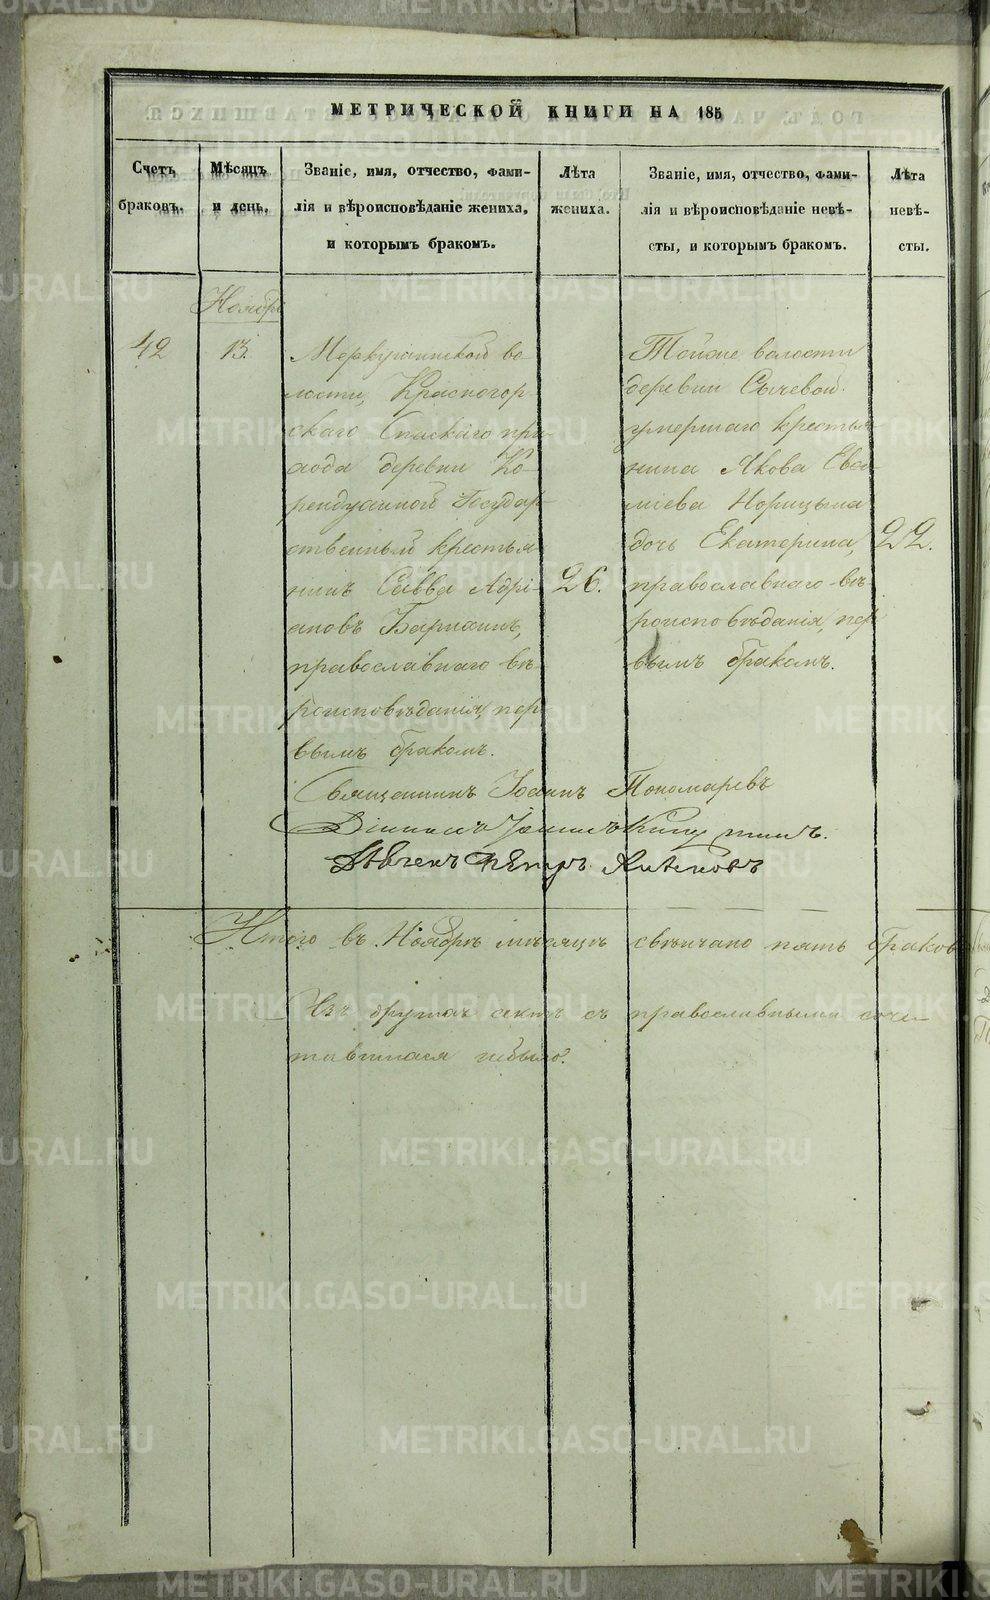 МЕТРИЧЕСКОЙ КНИГИ НА 185
Счетъ браковъ.
Мѣсяцъ и день.
Званіе, имя, отчество, фами-
лія и вѣроисповѣданіе жениха,
и которымъ бракомъ.
Лѣта
жениха.
Званіе, имя, отчество, фами-
лія и вѣроисповѣданіе невѣ-
сты, и которымъ бракомъ.
Лѣта
невѣ-
сты.
Ноябрь
42
13.
Меркушинской во
лости, Красногор
скаго Спаскаго при
хода деревни Ко
Государ
ственный крестья
нинъ Савва Адрі
ановъ
православнаго вѣ
роисповѣданія, пер
вымъ бракомъ.
26.
Тойже волости
деревни Сычевой
умершаго крестья
нина Якова Евсе
віева Норицына
дочь Екатерина,
православнаго вѣ
роисповѣданія, пер
вымъ бракомъ.
22.
Священникъ Іоаннъ Пономаревъ
Діаконъ
Дьячекъ Петръ
Итого въ Ноябрѣ мѣсяцѣ свѣнчано пять браковъ
Изъ другихъ сектъ съ православными соче
тавшихся небыло.
METRIKI.GASO-URAL.RU